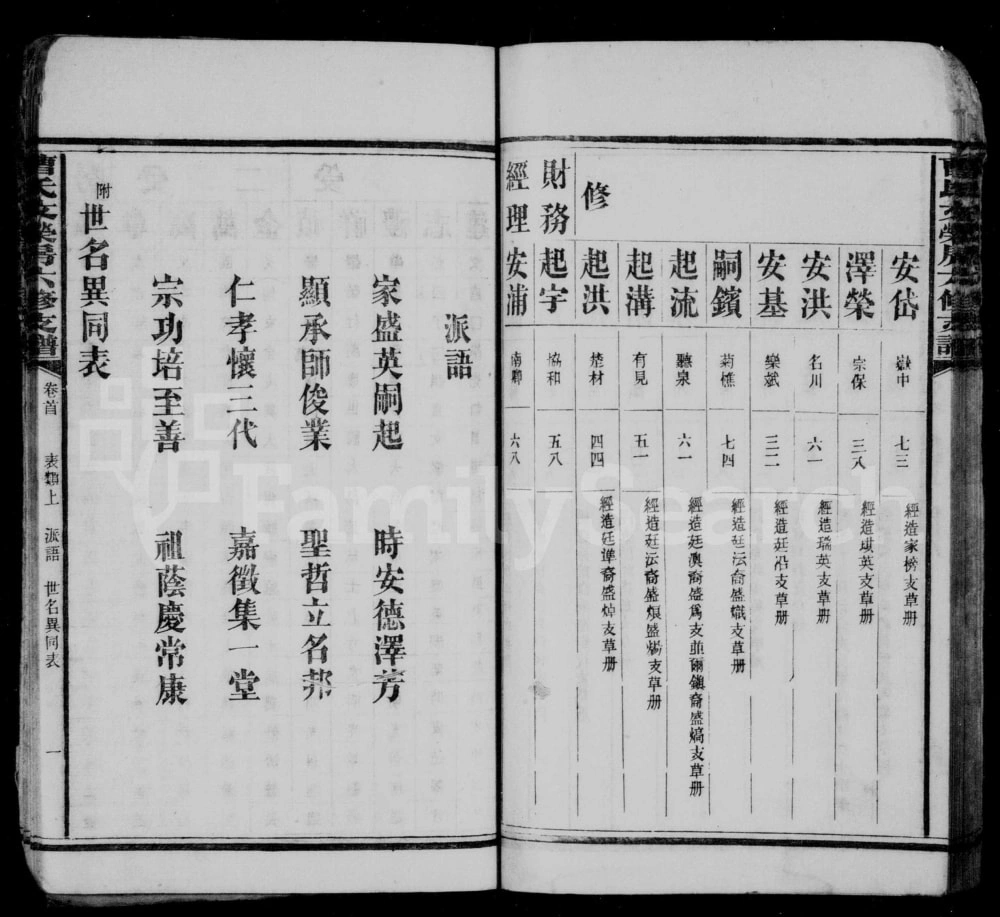 安岱 嶽中 七三 經造家榜支草册
澤榮 宗保 三八 經造琪英支草册
安洪 名川 六一 經造瑞英支草册
安基 樂斌 三二 經造廷沿支草册
嗣鑌 菊樵 七四 經造廷沄裔盛熾支草册
起流 聽泉 六一 經造廷澳裔盛爲支並爾鎮裔盛熇支草册
起溝 有見 五一 經造廷沄裔盛烺盛煬支草册
修 起洪 楚材 四四 經造廷澤裔盛焯支草册
財務 起宇 協和 五八
經理 安浦 南鄉 六八
派語
家盛英嗣起 時安德澤芳
顯承師俊業 聖哲立名邦
仁孝懷三代 嘉徵集一堂
宗功培至善 祖蔭慶常康
附世名異同表
曹氏文榮房六修支譜 卷首 表類上 派語 世名異同表 一
FamilySearch